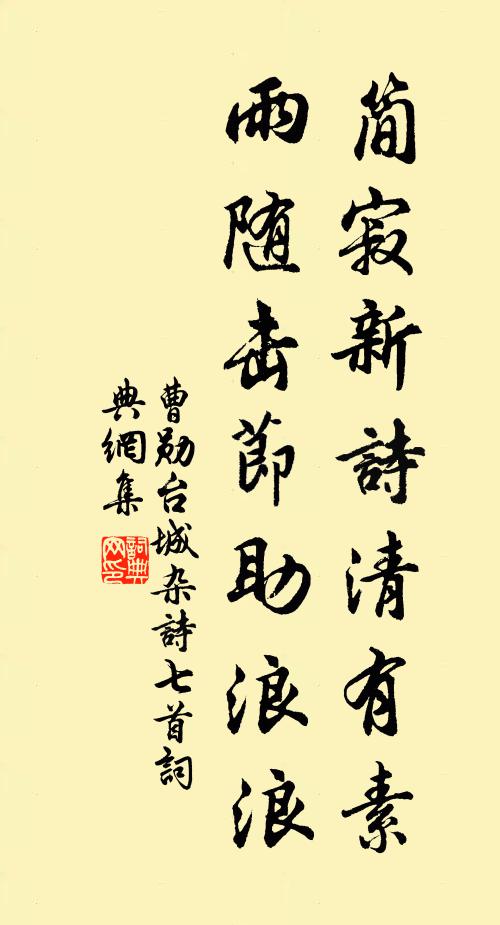 简寂新詩清有素
雨随击節助浪浪
曹勋台城杂詩七首詞
典網集
詞典
网印